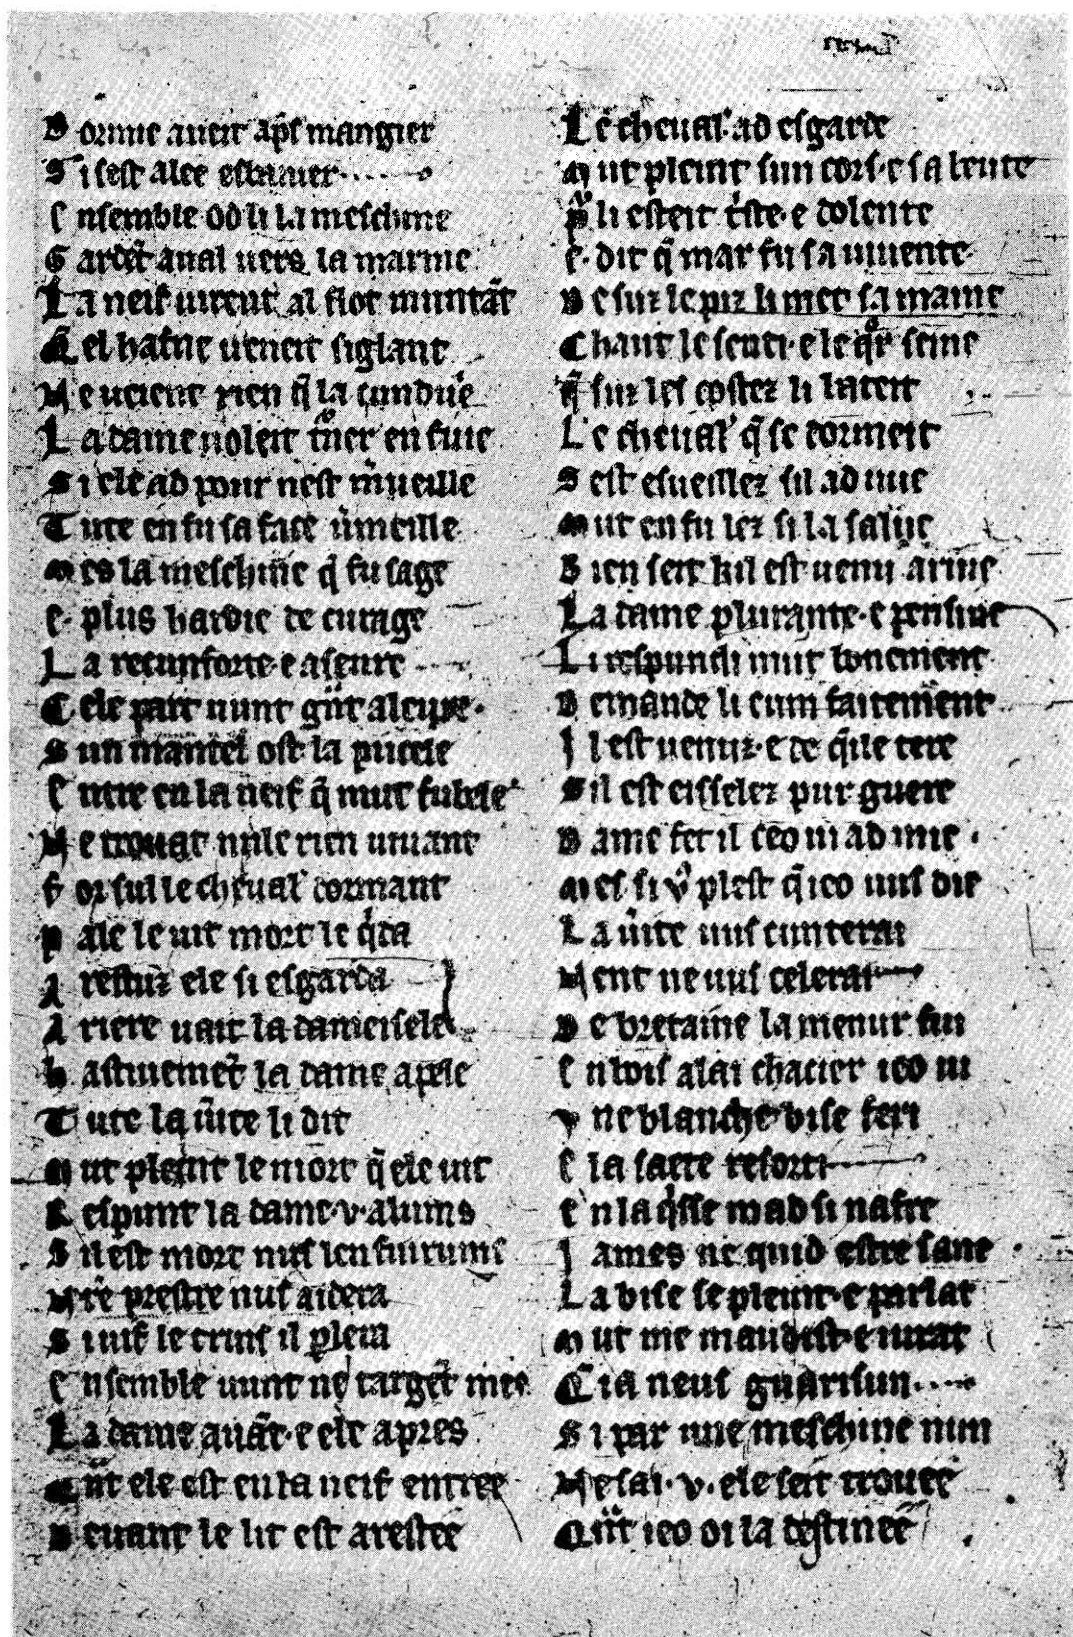 D ormie aueit ap̃s mangier
S i sest alee esbanier
E nsemble od li la meschine
G ardẽt aual uers la marine
L a neif uirent al flot muntãt
Q̃ el hafne ueneit siglant
N e ueient rien q̃ la cundue
L a dame uoleit t̉ner en fuie
S i ele ad pour nest m̉ueille
T ute en fu sa face ũmeille
M es la meschine q̃ fu sage
E · plus hardie de curage
L a recunforte · e aseure
C ele part uunt gñt aleure ·
S un mantel ost la pucele
E ntre en la neif q̃ mut fu bele
N e trouat nule rien uiuant
F or sul le cheual̉ dormant
P ale le uit mort le q̉da
A restut ele si esgarda
A riere uait la dameisele
H astiuemẽt la dame apele
T ute la ũite li dit
M ut pleint le mort q̃ ele uit
R espunt la dame · v · alums
S il est mort nus len fuirums
N r̃e prestre nus aidera
S i uif le truis il ꝑlera
E nsemble uunt ne targẽt mie
L a dame auãt · e ele apres
Q ñt ele est en la neif entree
D euant le lit est arestee
L e cheual̉ ad esgarde
M ut pleint sun cors · e sa beute
P̉ li esteit t̉ste · e dolente
E · dit q̃ mar fu sa iuuente
D esur le piz li met sa main
C haut le senti · e le q̉r sein
Q̃ suz les costez li bateit
L e cheual̉ q̃ se dormeit
S est esueillez si lad uue
M ut en fu lez si la salue
B ien seit kil est uenu a riue
L a dame plurante · e pensiue
L i respundi mut bonement
D emande li cum faitement
I l est uenuz · e de q̃le tere
S il est eissellez pur guere
D ame fet il ceo ni ad mie ·
M es si v̉ plest q̃ ieo uus die
L a ũite uus cunterai
N ent ne uus celerai
D e bretaine la menur fui
E n bois alai chacier ieo ui
V ne blanche bise feri
E la saete resorti
E n la q̉sse mad si nafre
I ames ne quid estre sane
L a bise se pleint · e parlat
M ut me maudist · e iurat
Q̃ ia neus guarisun
S i par une meschine nun
N e sai · v · ele seit trouee
Q ñt ieo oi la destinee